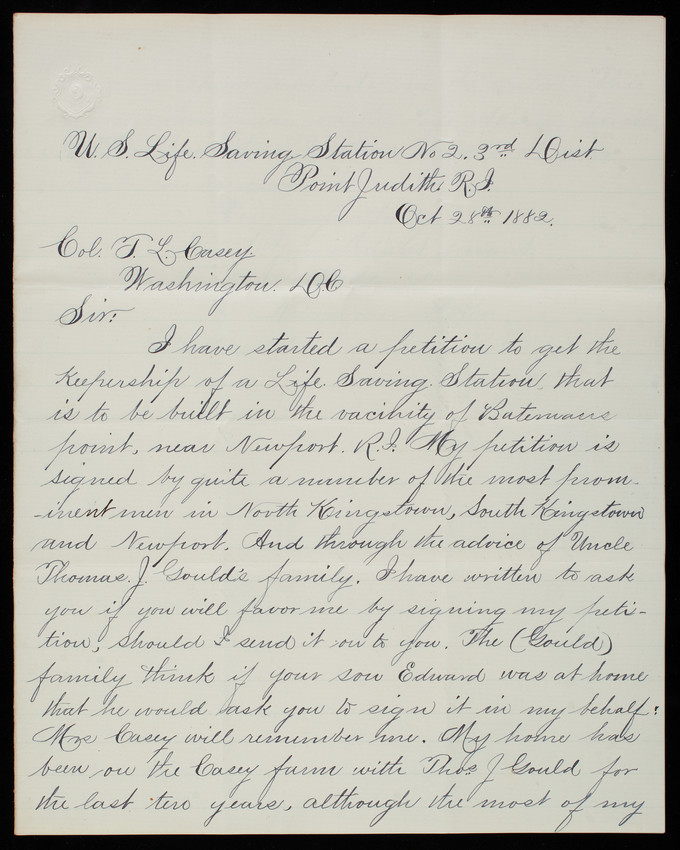 U. S. Life. Saving Station No 2. 3rd Dist
Point Judith R. I.
Oct 28th 1882.
Col. T. L. Casey.
Washington. D.C
Sir:
I have started a petition to get the
Keepership of a Life. Saving. Station, that
is to be built in the vacinity of Batemans
point, near Newport. R.I. My petition is
signed by quite a number of the most prom-
-inent men in North Kingstown, South Kingstown
and Newport. And through the advice of Uncle
Thomas. J. Gould's family. I have written to ask
you if you will favor me by signing my peti-
tion, should I send it on to you. The (Gould)
family think if your son Edward was at home
that he would ask you to sign it in my behalf:
Mrs Casey will remember me. My home has
been on the Casey farm with Thos J Gould for
the last ten years, although the most of my